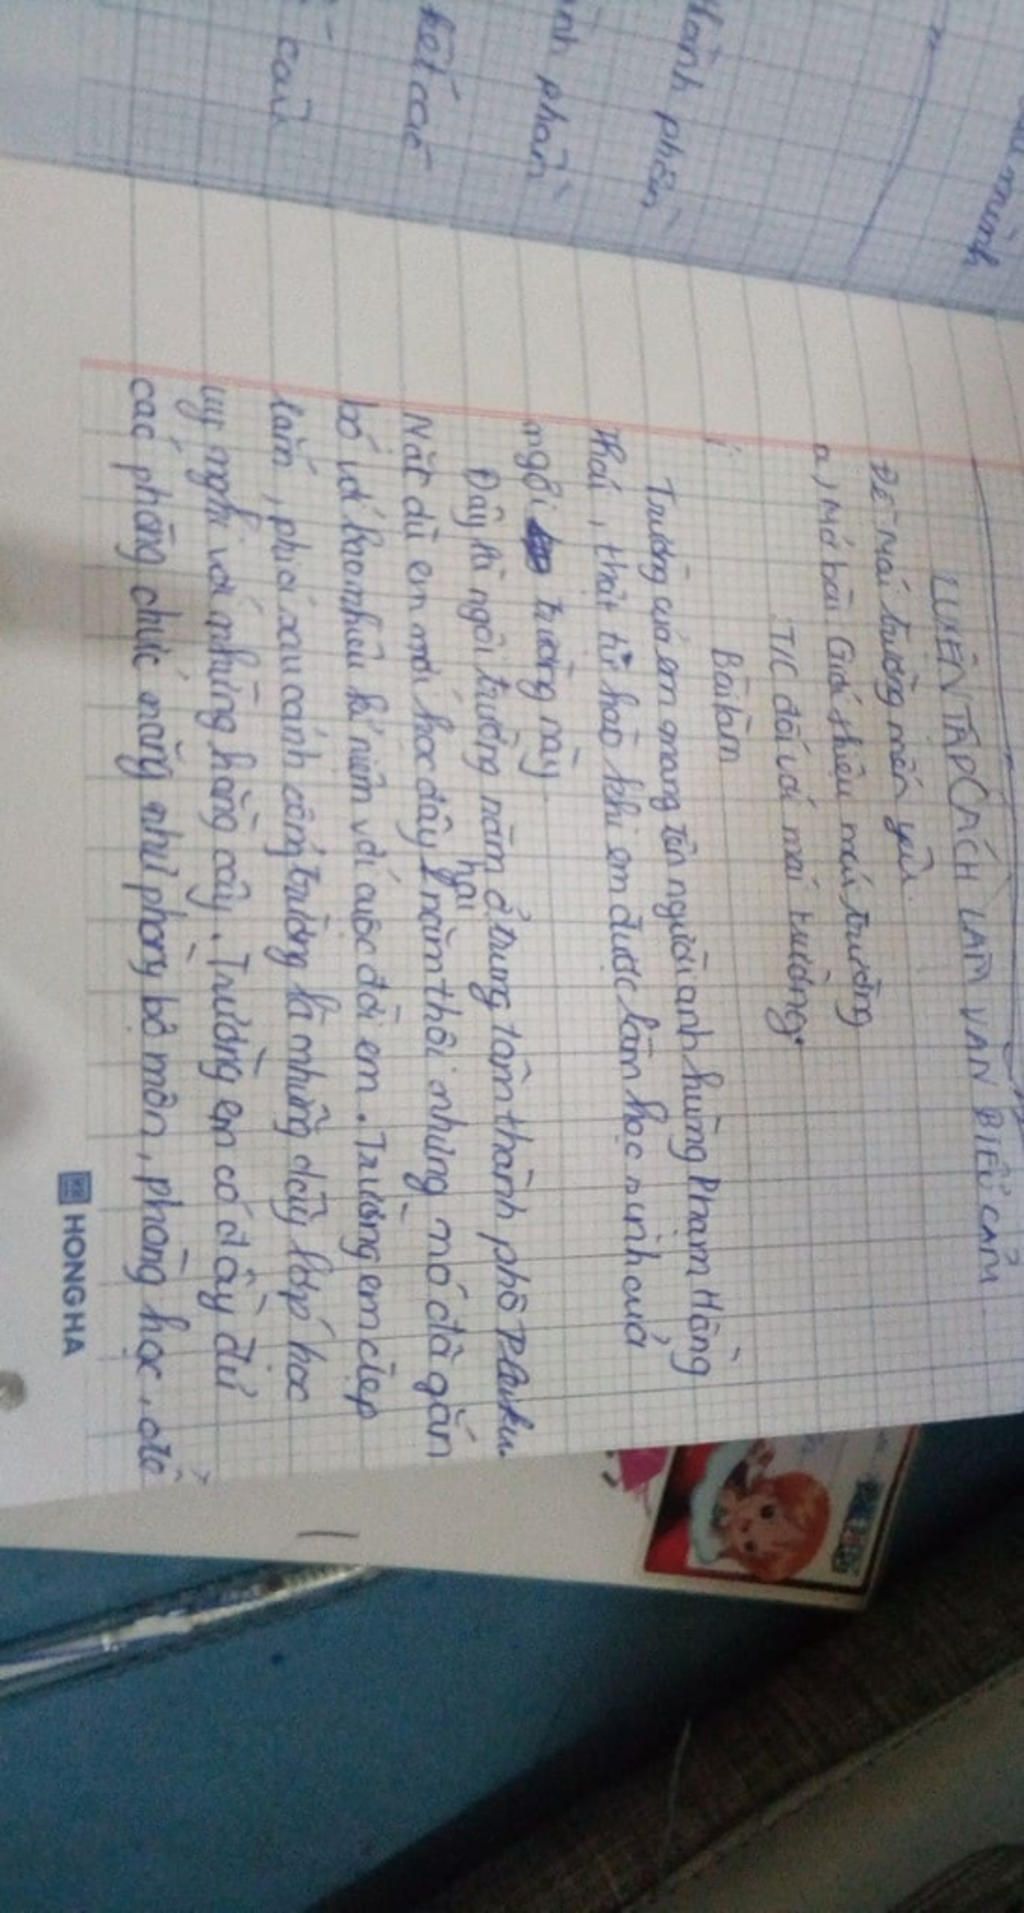 thành phần
ình phần
kết các
cau
mình
LUYỆN TẬP CÁCH LÀM VĂN BIỂU CẢM
Đề Mái trường mến yêu
a, Mở bài Giới thiệu mái trường
T/C đối với mái trường
Bài làm
Trường của em mang tên người anh hùng Phạm Hồng
Thái, thật tự hào khi em được làm học sinh của
ngôi trường này
Đây là ngôi trường nằm ở trung tâm thành phố Pleiku.
Mặt dù em mới học đây hai năm thôi nhưng nó đã gắn
bó với bao nhiêu kỉ niệm với cuộc đời em. Trường em đẹp
lắm, phía sau cánh cổng trường là những dãy lớp học
uy nghi với những hàng cây. Trường em có đầy đủ
các phòng chức năng như phòng bộ môn, phòng học, để
HONG HA